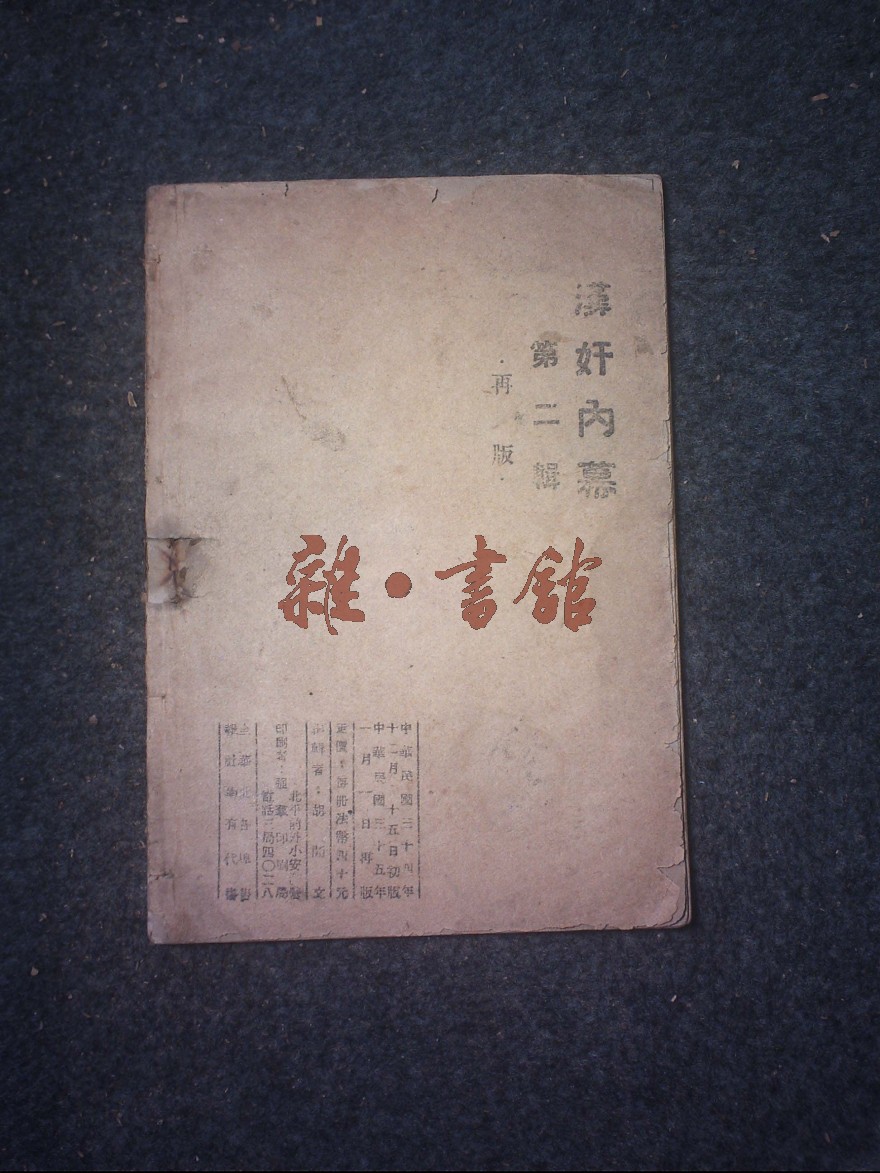 漢奸內幕
第二輯
·再版·
雜•書館
中華民國三十四年
十二月十五日初版
中華民國三十五年
一月一日再版
定價：每冊法幣四十元
者：胡 文
北平前外小安
印刷者：羣印刷局
電話三局四〇二八
全華北各地
報社均有代售